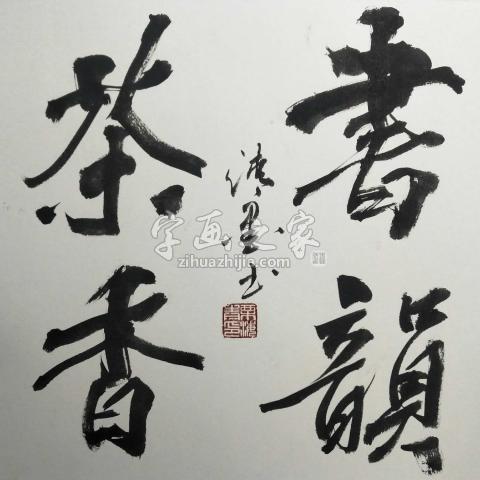 書韻
茶香
字画之家
zihuazhijie.com